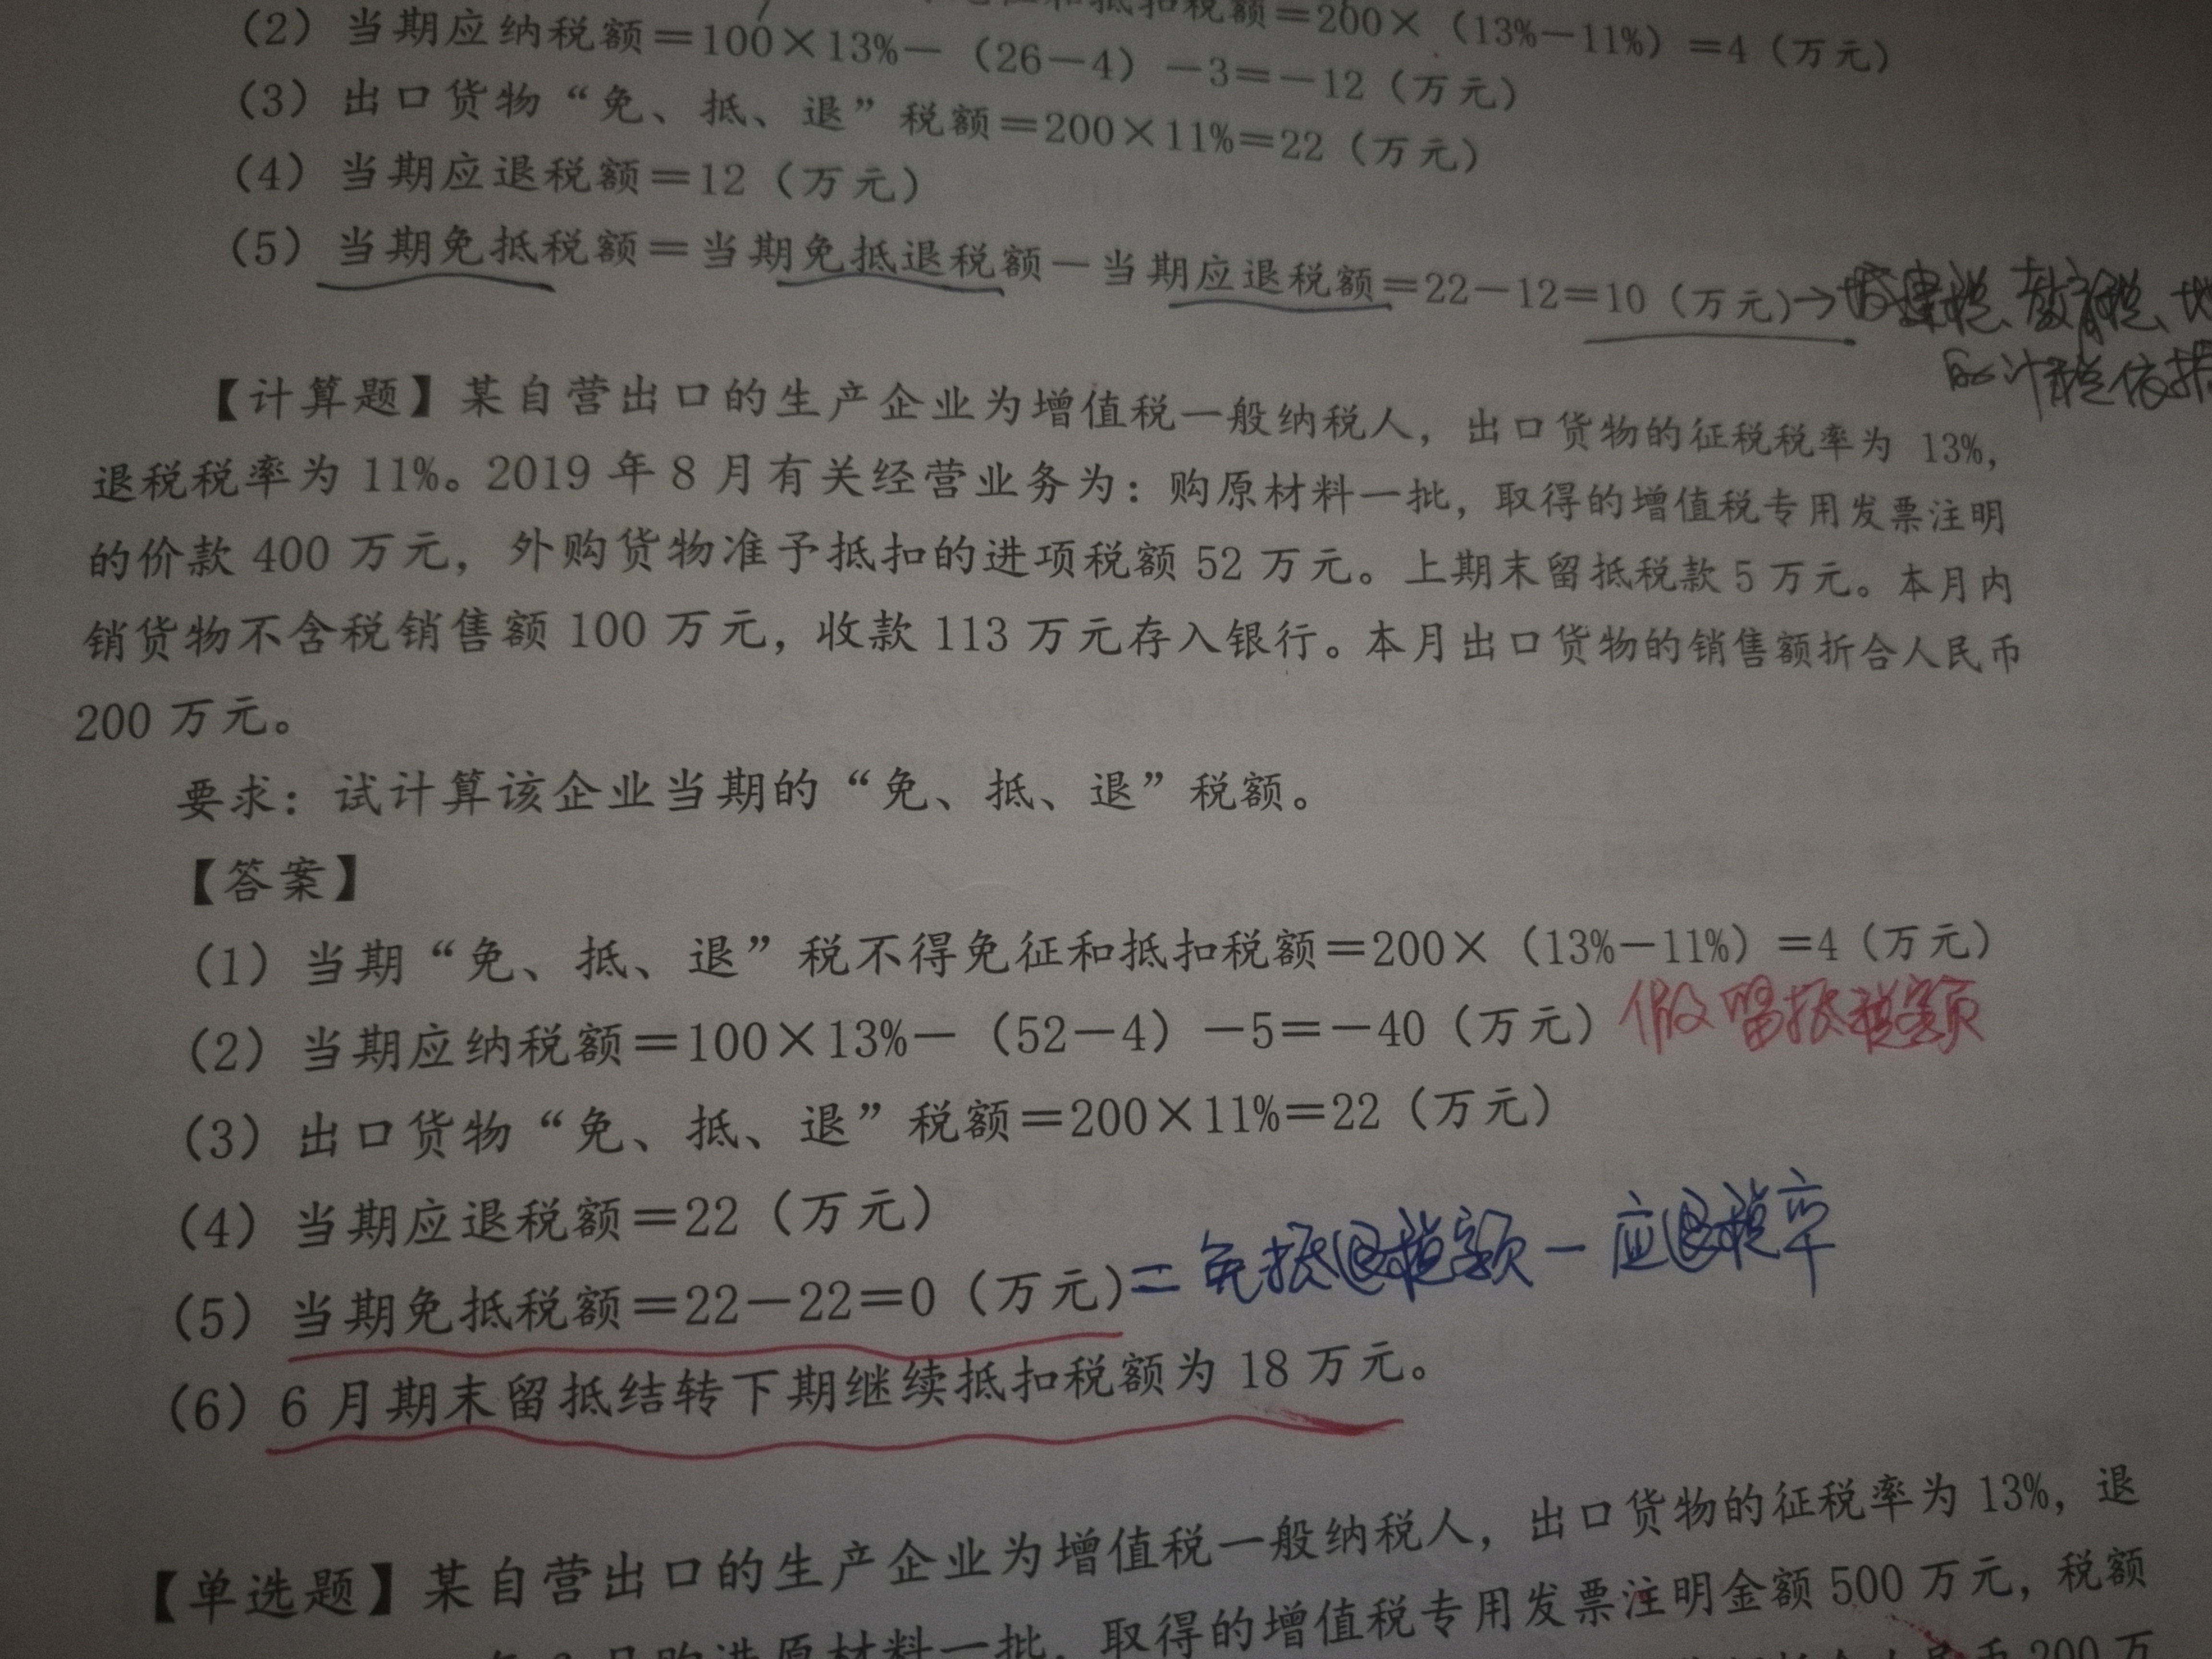 和抵扣税额＝200×（13%－11%）＝4（万元）
（2）当期应纳税额＝100×13%－（26－4）－3＝－12（万元）
（3）出口货物“免、抵、退”税额＝200×11%＝22（万元）
（4）当期应退税额＝12（万元）
（5）当期免抵税额＝当期免抵退税额－当期应退税额＝22－12＝10（万元）→城建税、教育税、地
的计税依据
【计算题】某自营出口的生产企业为增值税一般纳税人，出口货物的征税税率为 13%，
退税税率为 11%。2019 年 8 月有关经营业务为：购原材料一批，取得的增值税专用发票注明
的价款 400 万元，外购货物准予抵扣的进项税额 52 万元。上期末留抵税款 5 万元。本月内
销货物不含税销售额 100 万元，收款 113 万元存入银行。本月出口货物的销售额折合人民币
200 万元。
要求：试计算该企业当期的“免、抵、退”税额。
【答案】
（1）当期“免、抵、退”税不得免征和抵扣税额＝200×（13%－11%）＝4（万元）
（2）当期应纳税额＝100×13%－（52－4）－5＝－40（万元）假留抵税额
（3）出口货物“免、抵、退”税额＝200×11%＝22（万元）
（4）当期应退税额＝22（万元）
（5）当期免抵税额＝22－22＝0（万元）＝免抵退税额－应退税率
（6）6 月期末留抵结转下期继续抵扣税额为 18 万元。
【单选题】某自营出口的生产企业为增值税一般纳税人，出口货物的征税税率为 13%，退
月购进原材料一批，取得的增值税专用发票注明金额 500 万元，税额
币 200 万